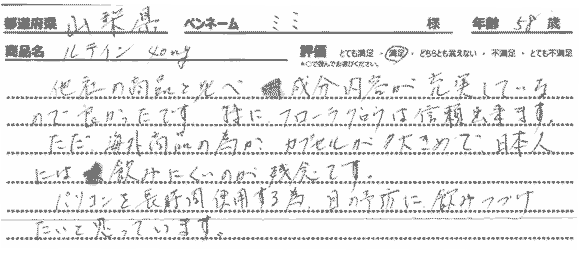 都道府県 山梨県 ペンネーム ミミ 様 年齢 58 歳
商品名 ルテイン 40mg 評価 とても満足・満足・どちらとも言えない・不満足・とても不満足
*○で囲んでお選びください。
他社の商品と比べ 成分内容が充実している
ので良かったです。特にフローラグロウは信頼出来ます。
ただ、海外商品の為か、カプセルが大きめで、日本人
には 飲みにくいのが残念です。
パソコンを長時間使用する為、目の予防に飲みつづけ
たいと思っています。